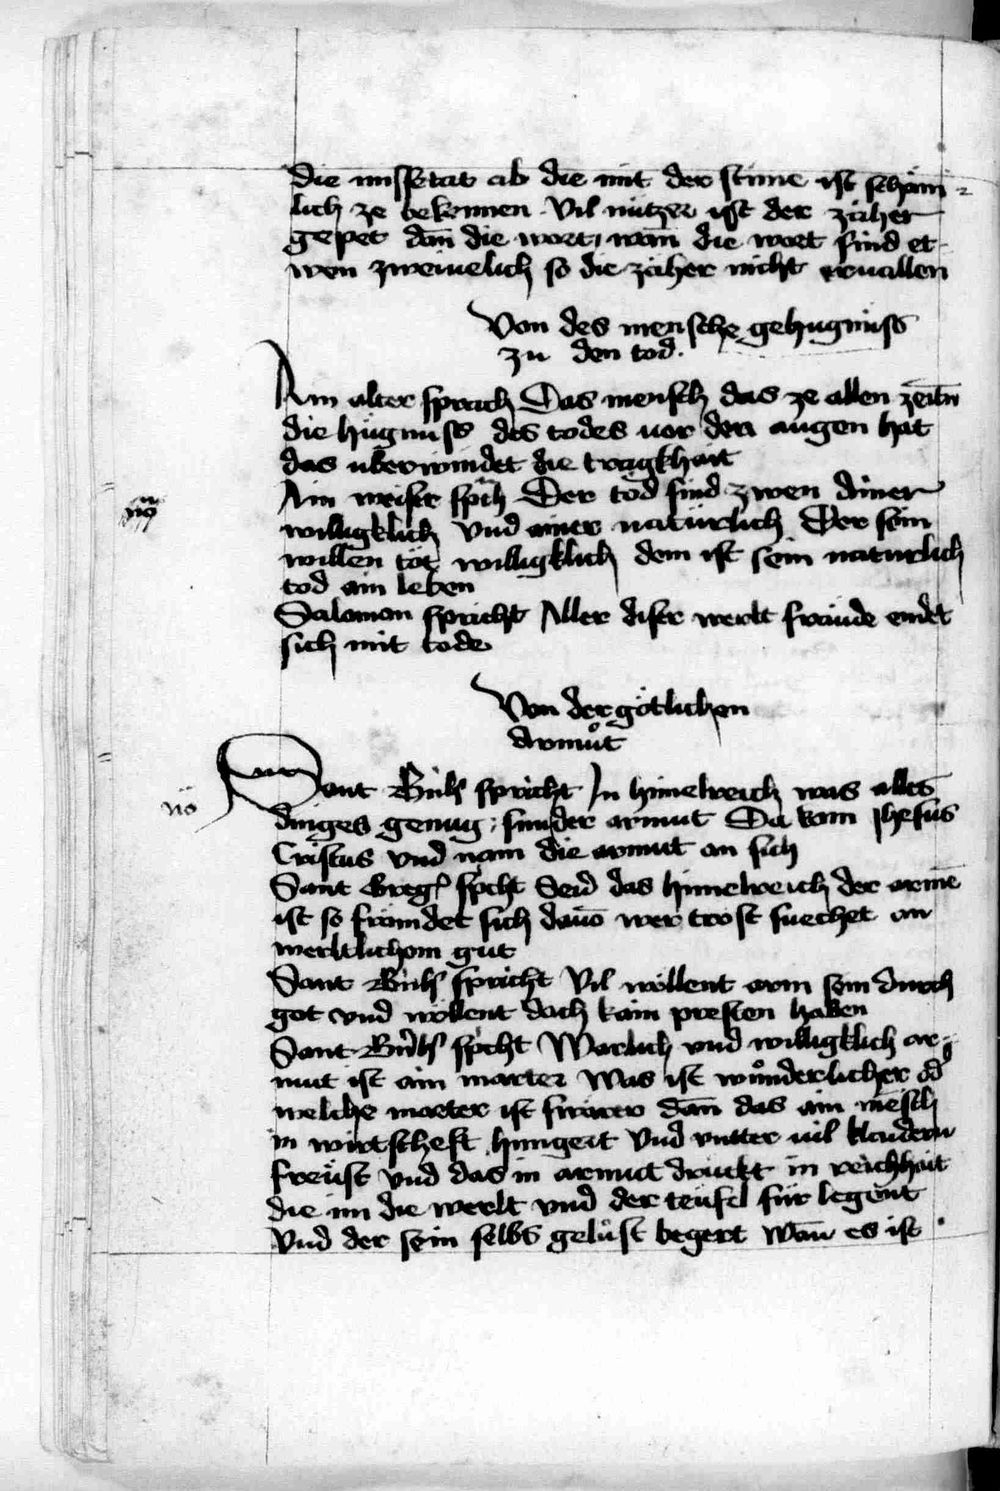 die missetat ab die mit der stime ist schäm-
lich ze bekennen Vil nützer ist der zäher
gepet dañ die wort, wañ die wort sind et-
wen zweiuelich so die zäher nicht ervallen
Von des mensche gehugnuss
zu den tod.
Ain alter sprach Das mensch das ze allen zeitñ
die hügnuss des todes vor den augen hat
das uberwindet die tragkhait
Ain weiser spᵃch Der töd sind zwen ainer
willigklich Vnd ainer natürlich Der sein
willen töt willigklich dem ist sein naturlich
tod ain leben
Salomon spricht Aller diser werlt fräude endet
sich mit tode
Von der götlichen
armůt
Sant spricht In himelreich was alles
dinges genug, sunder armut Da kam Jhesus
Cristus vnd nam die armut an sich
Sant Greg spͥcht Seid das himelreich der armē
ist so främdet sich dauō wer trost suechet an
werltlichom gut
Sant spricht Vil wöllent arm sein durch
got vnd wöllent doch kain presten haben
Sant spͥcht Warlich vnd willigklich ar-
mut ist ain marter Was ist wůnderlicher od
welche marter ist swärer dañ das ain mēsch
in wirtscheft hungert Vnd vntter vil klaidern
freust Vnd das in armut druckt in reichhait
die im die werlt vnd der teüfel für legent
Vnd der sein selbs gelüst begert Wañ es ist